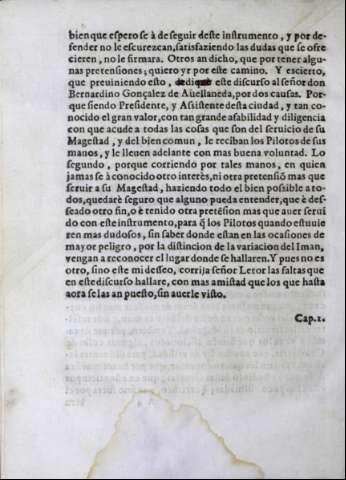 bien que espero se à de seguir deste instrumento, y por de-
fender no le escurezcan, satisfaziendo las dudas que se ofre
cieren, no le firmara. Otros an dicho, que por tener algu-
nas pretensiones; quiero yr por este camino. Y es cierto,
que preuiniendo esto, dedique este discurso al señor don
Bernardino Gonçalez de Auellaneda, por dos causas. Por-
que siendo Presidente, y Asistente desta ciudad, y tan co-
nocido el gran valor, con tan grande afabilidad y diligencia
con que acude a todas las cosas que son del seruicio de su
Magestad, y del bien comun, le reciban los Pilotos de sus
manos, y le lleuen adelante con mas buena voluntad. Lo
segundo, porque corriendo por tales manos, en quien
jamas se à conocido otro interès, ni otra pretensiõ mas que
seruir a su Magestad, haziendo todo el bien possible a to-
dos, quedarè seguro que alguno pueda entender, que è des-
seado otro fin, o è tenido otra pretẽsion mas que auer serui
do con este instrumento, para q̃ los Pilotos quando estuuie
ren mas dudosos, sin saber donde estan en las ocasiones de
mayor peligro, por la distincion de la variacion del Iman,
vengan a reconocer el lugar donde se hallaren. Y pues no es
otro, sino este mi desseo, corrija señor Letor las faltas que
en este discurso hallare, con mas amistad que los que hasta
aora se las an puesto, sin auerle visto.
Cap. 1.